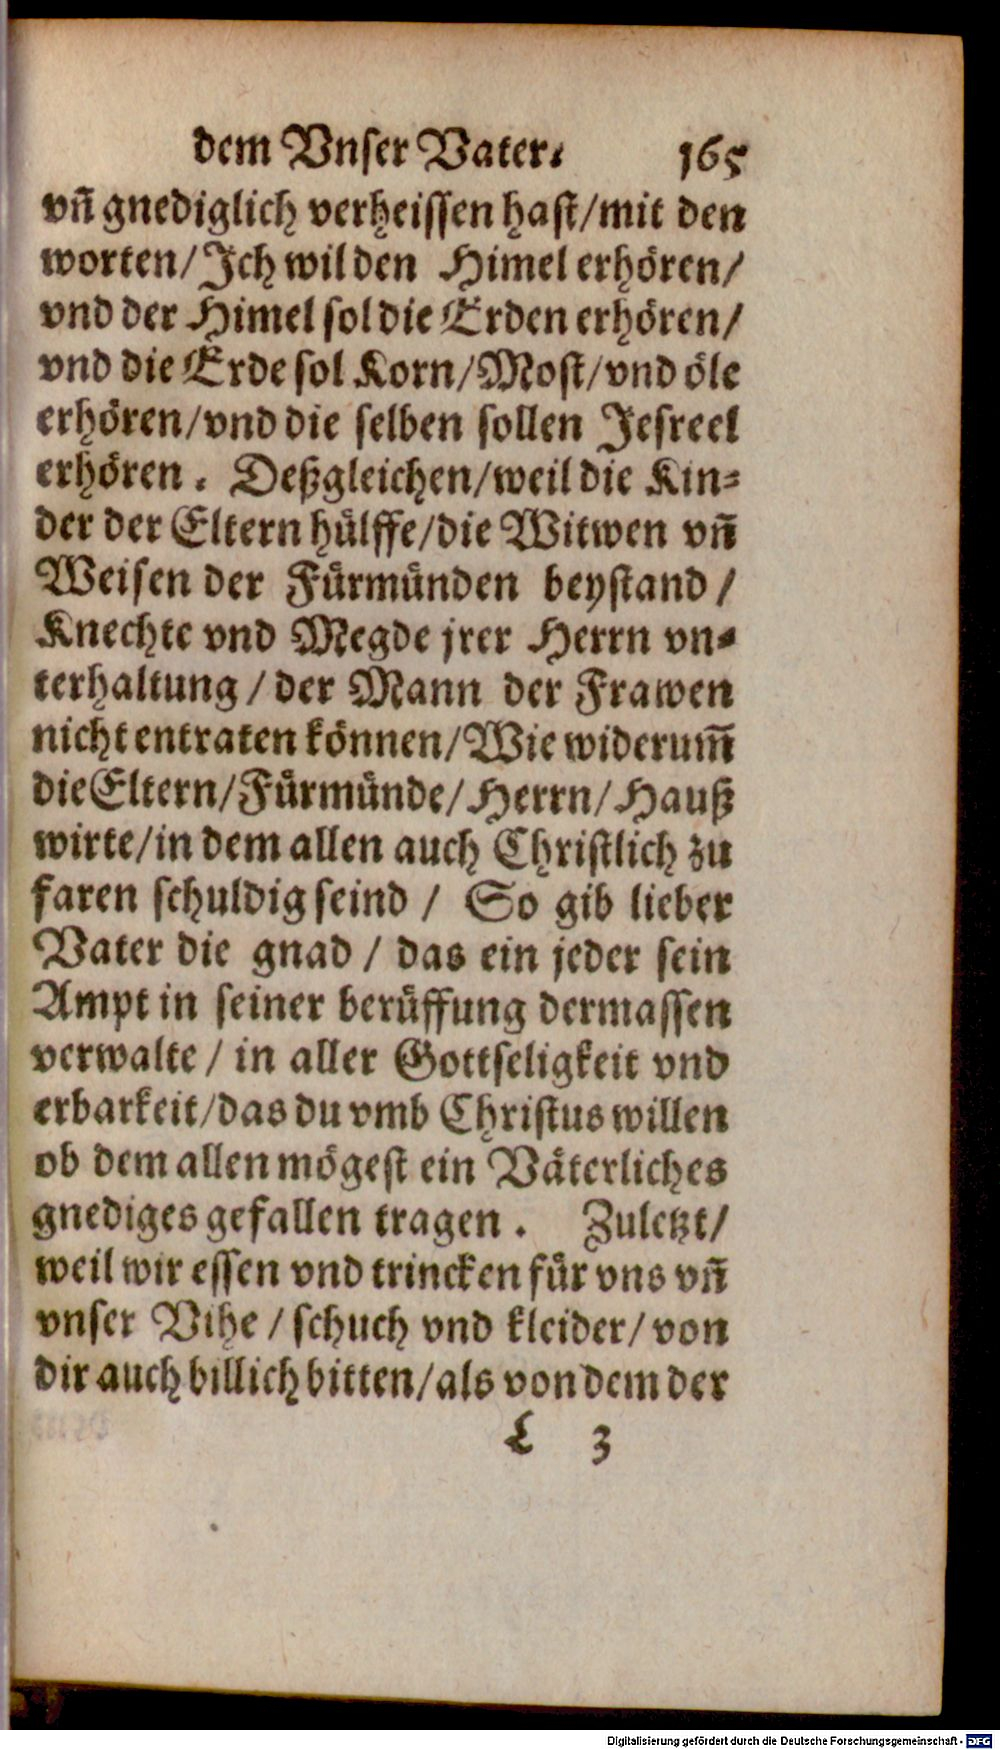 dem Vnser Vater. 165
vn̄ gnediglich verheissen hast/mit den
worten/Jch wil den Himel erhören/
vnd der Himel sol die Erden erhören/
vnd die Erde sol Korn/Most/vnd öle
erhören/vnd die selben sollen Jesreel
erhören. Deßgleichen/weil die Kin-
der der Eltern hülffe/die Witwen vn̄
Weisen der Fürmünden beystand/
Knechte vnd Megde jrer Herrn vn-
terhaltung/der Mann der Frawen
nicht entraten können/Wie widerum̄
die Eltern/Fürmünde/Herrn/Hauß
wirte/in dem allen auch Christlich zu
faren schuldig seind/ So gib lieber
Vater die gnad/das ein jeder sein
Ampt in seiner berüffung dermassen
verwalte/in aller Gottseligkeit vnd
erbarkeit/das du vmb Christus willen
ob dem allen mögest ein Väterliches
gnediges gefallen tragen. Zuletzt/
weil wir essen vnd trincken für vns vn̄
vnser Vihe/schuch vnd kleider/von
dir auch billich bitten/als von dem der
L 3
Digitalisierung gefördert durch die Deutsche Forschungsgemeinschaft - DFG